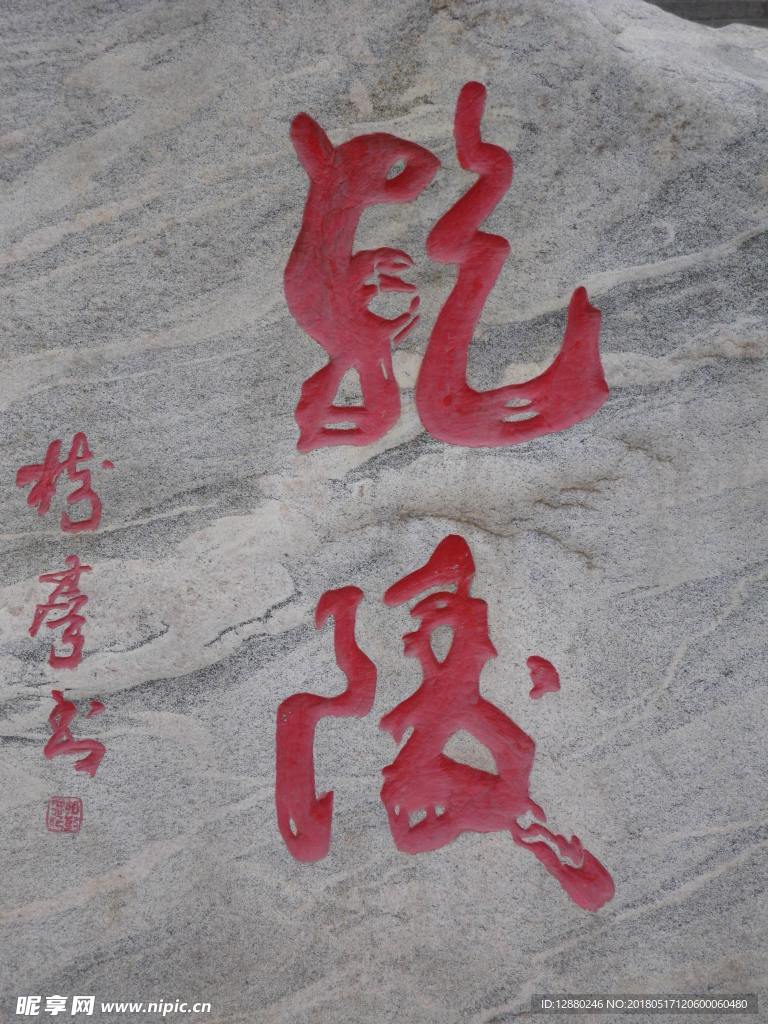 乾陵
书
昵享网 www.nipic.cn
ID:12880246 NO:20180517120600060480